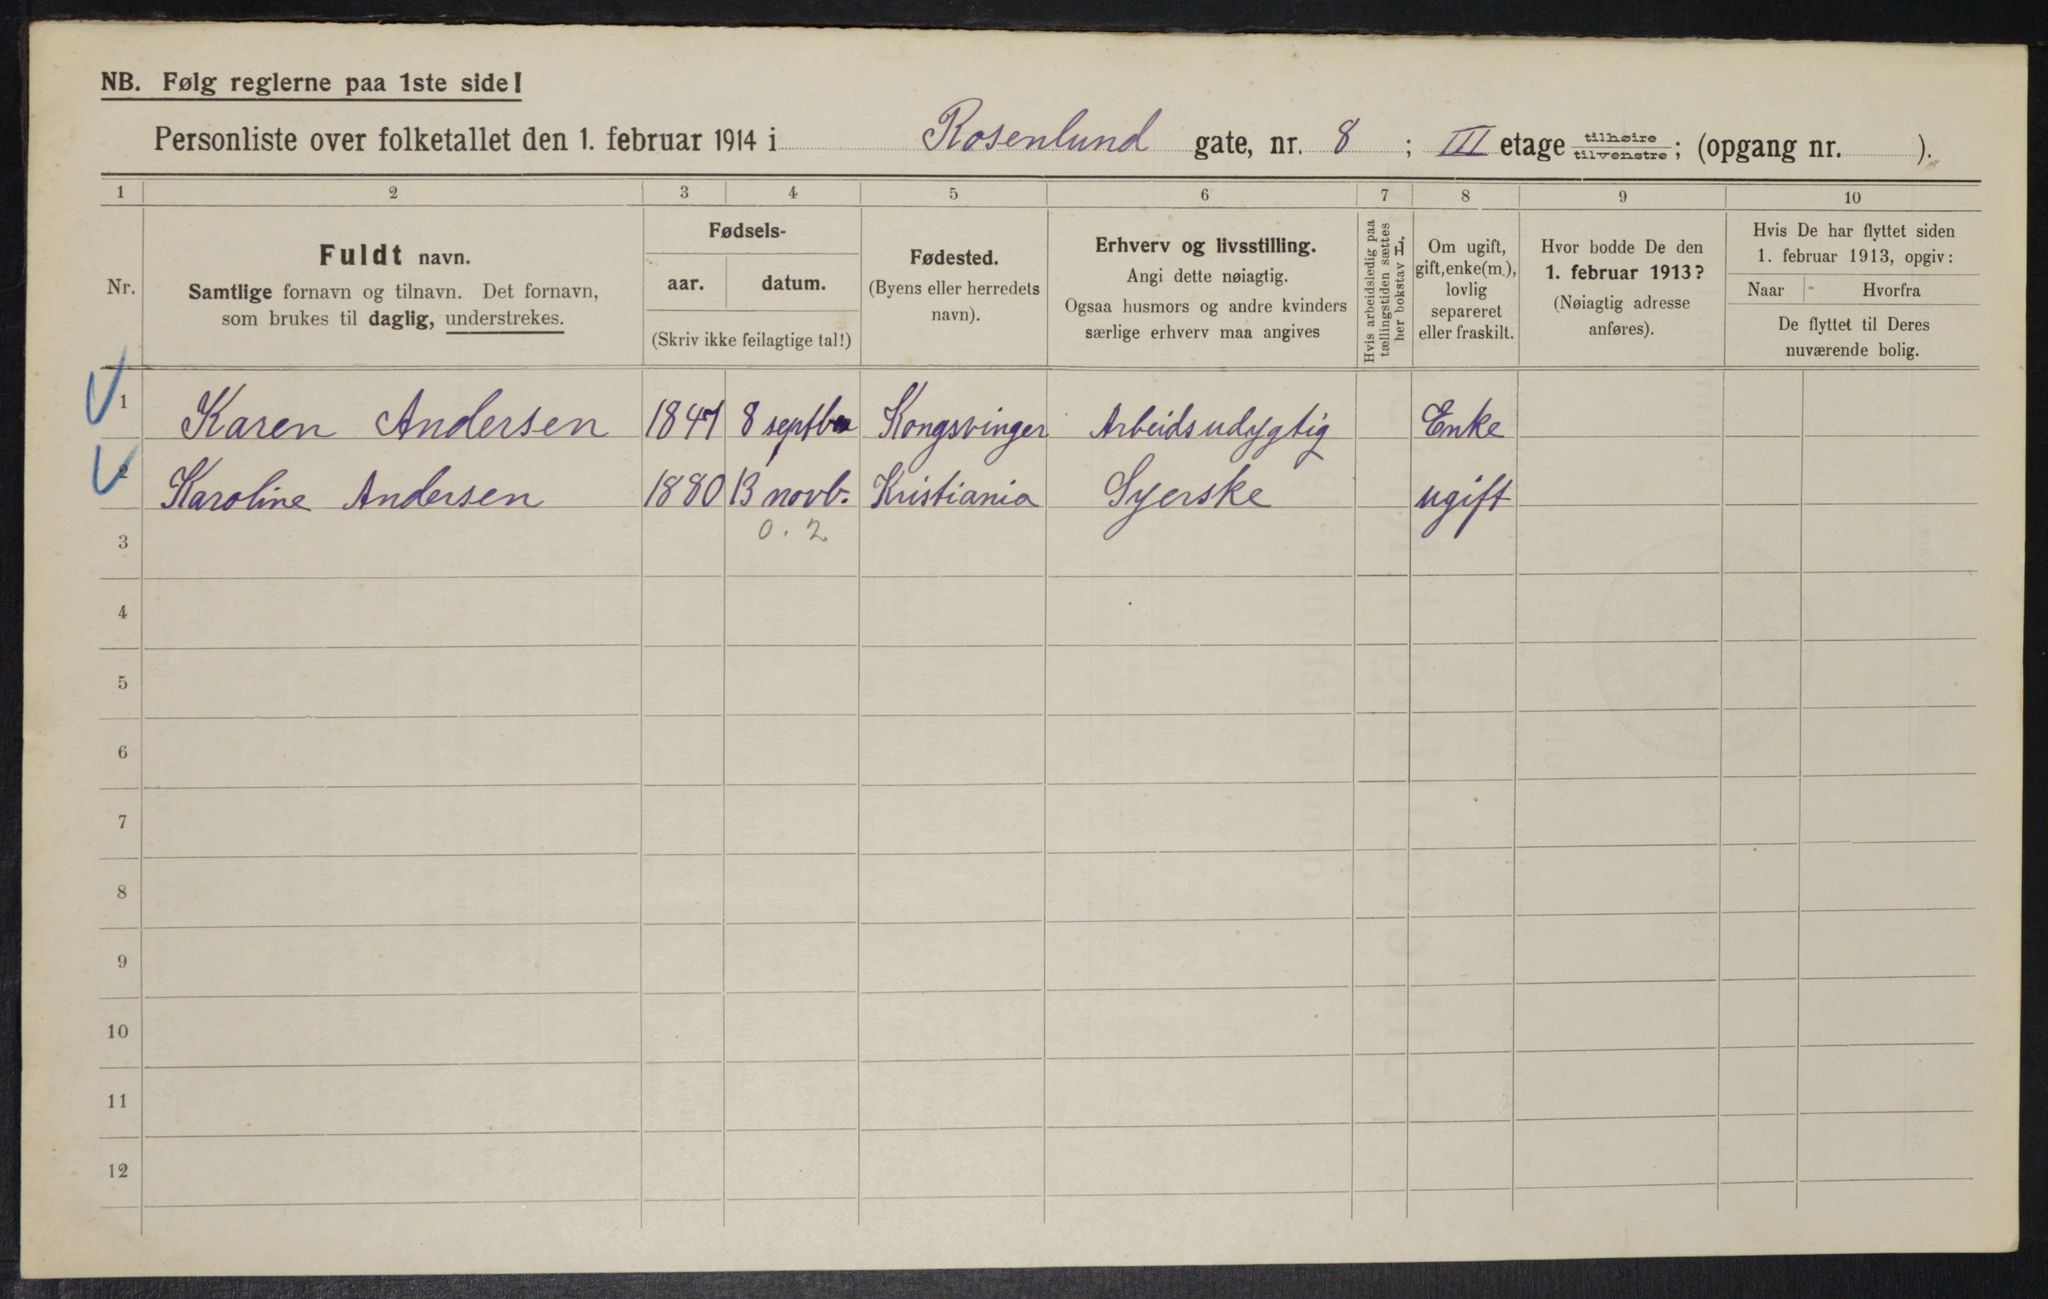 NB. Følg reglerne paa 1ste side!
Personliste over folketallet den 1. februar 1914 i Rosenlund gate, nr. 8 ; III etage tilhøire tilvenstre; (opgang nr. ).
1 2 3 4 5 6 7 8 9 10
Nr.
Fuldt navn.
Samtlige fornavn og tilnavn. Det fornavn,
som brukes til daglig, understrekes.
Fødsels-
aar. datum.
(Skriv ikke feilagtige tal!)
Fødested.
(Byens eller herredets
navn).
Erhverv og livsstilling.
Angi dette nøiagtig.
Ogsaa husmors og andre kvinders
særlige erhverv maa angives
Hvis arbeidsledig paa
tællingstiden sættes
her bokstav L.
Om ugift,
gift, enke(m.),
lovlig
separeret
eller fraskilt.
Hvor bodde De den
1. februar 1913?
(Nøiagtig adresse
anføres).
Hvis De har flyttet siden
1. februar 1913, opgiv:
Naar Hvorfra
De flyttet til Deres
nuværende bolig.
1 Karen Andersen 1847 8 septbr Kongsvinger Arbeidsudygtig Enke
2 Karoline Andersen 1880 13 novb. Kristiania Syerske ugift
0.2
3
4
5
6
7
8
9
10
11
12